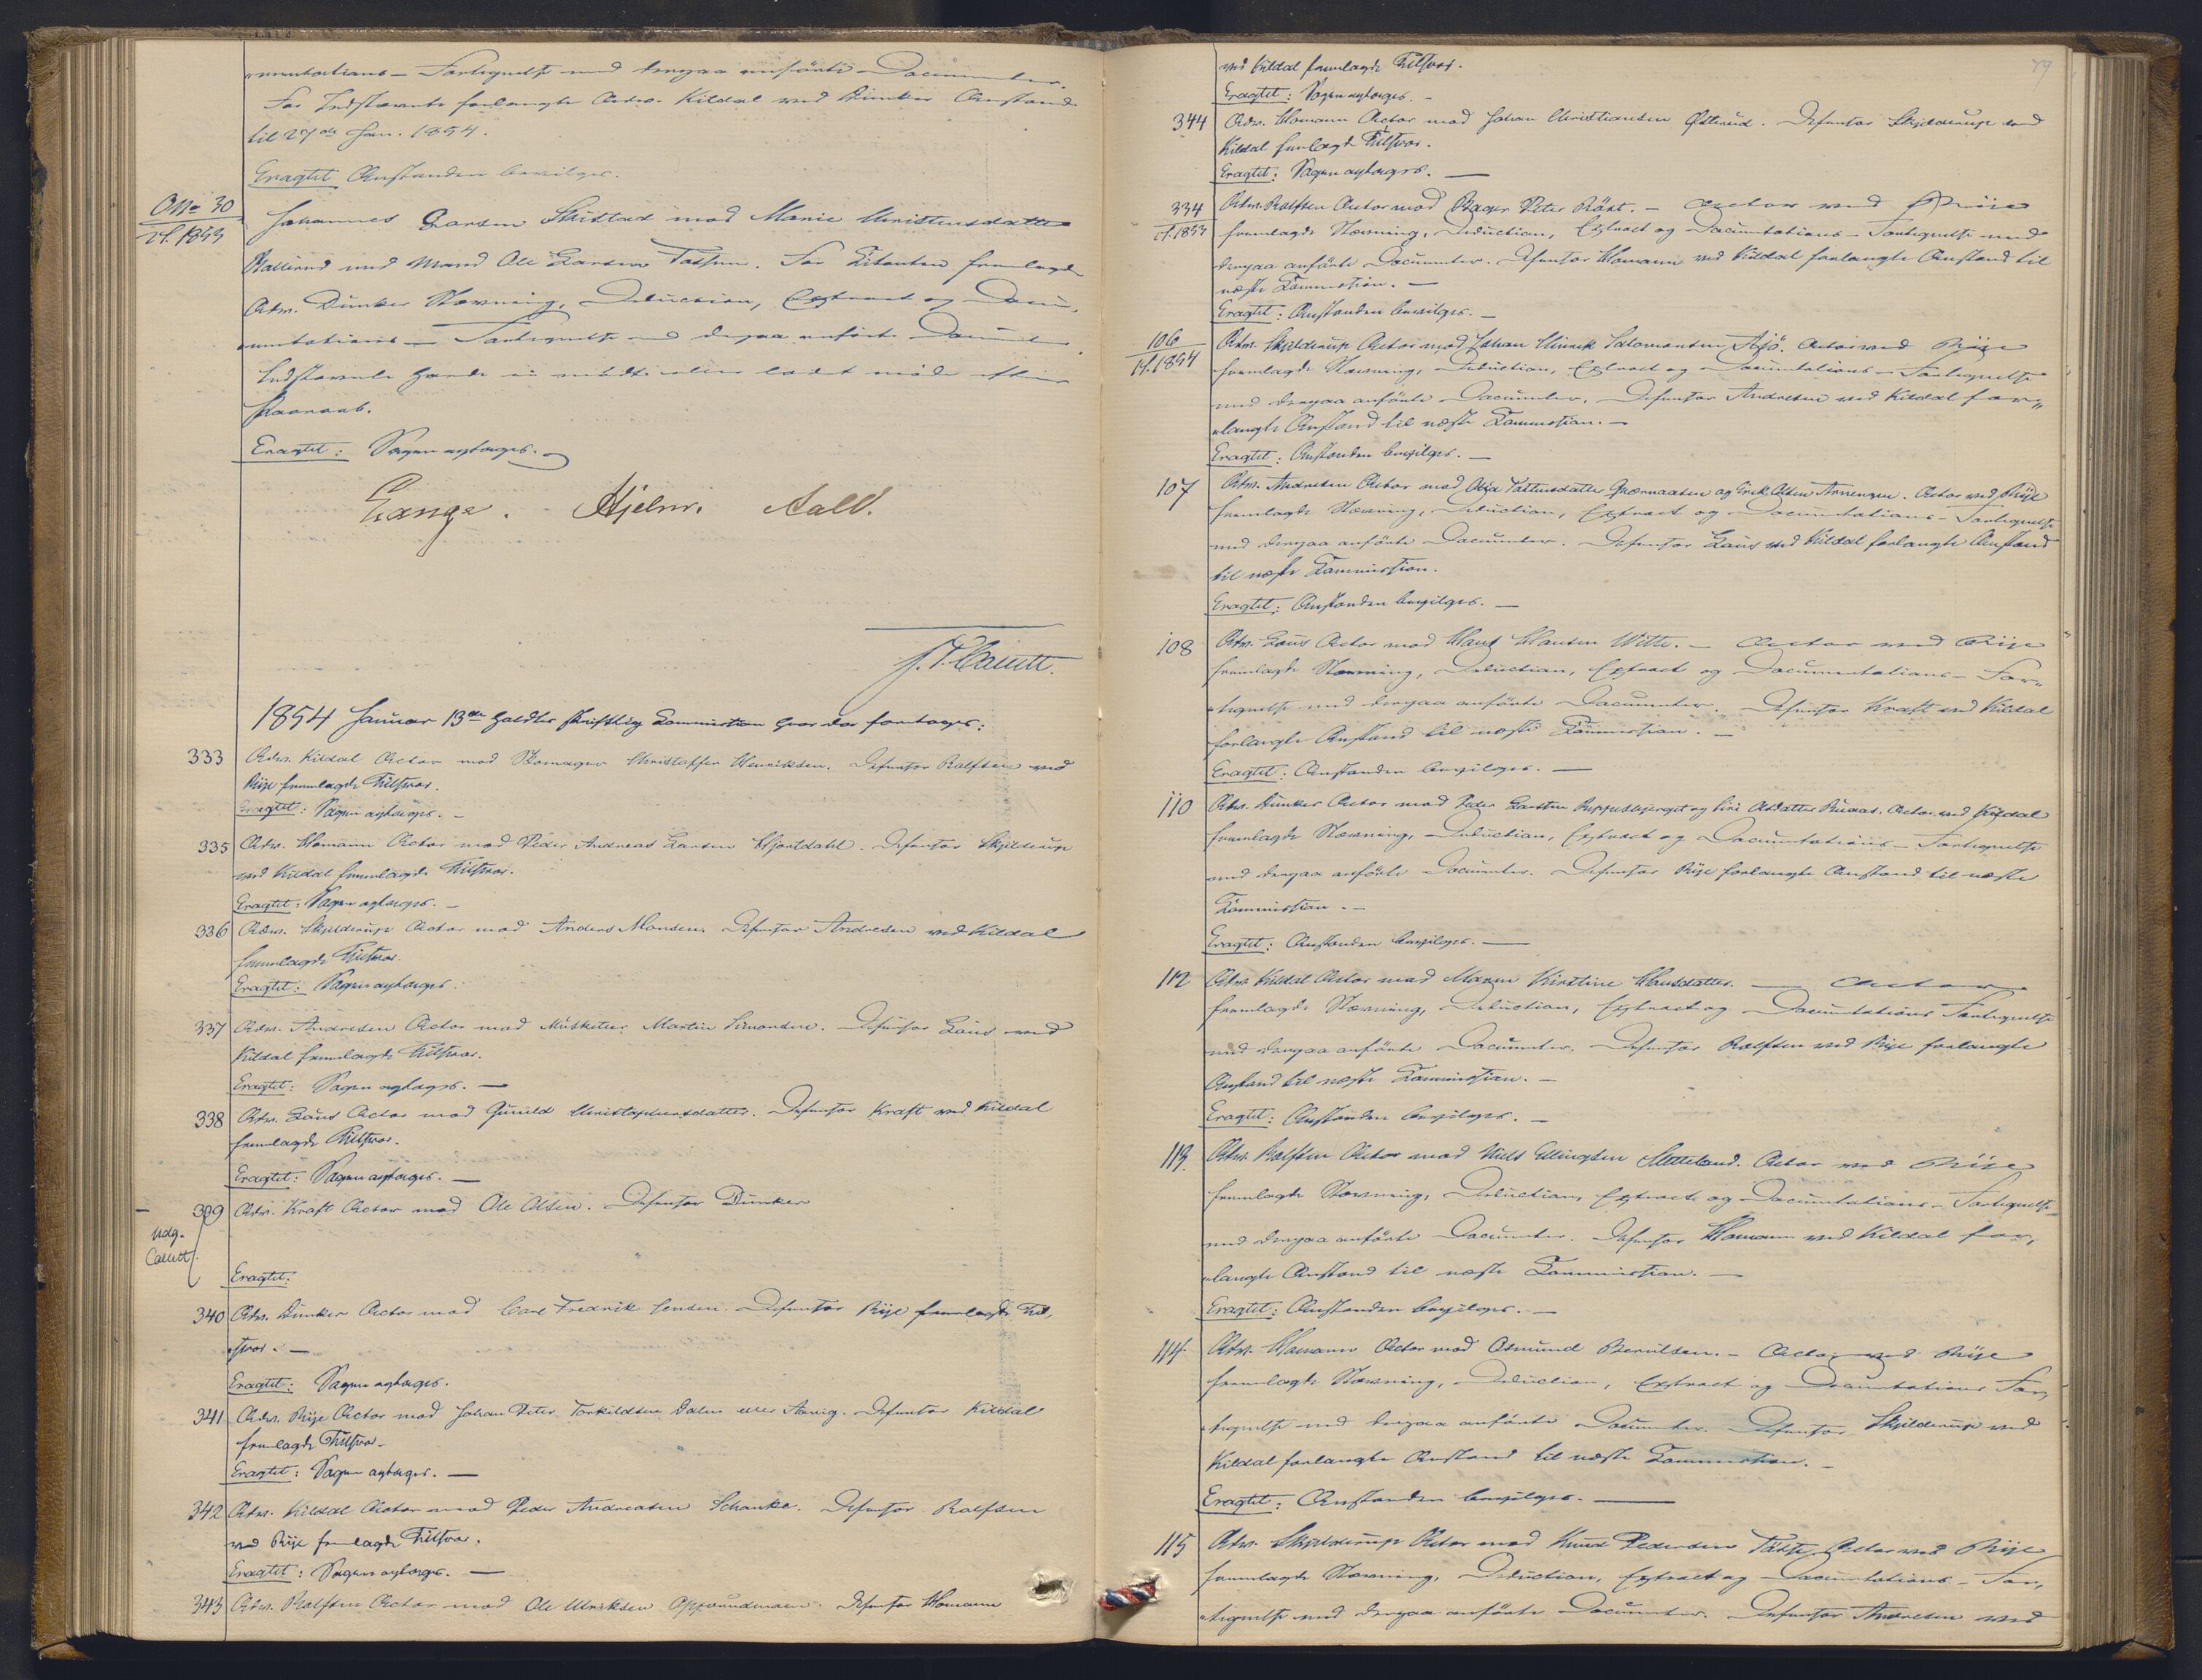 mentations-Fortegnelse med derpaa anförte Documenter.
For Indstævnte forlangte Adv. Kildal ved Dunker Anstand
til 27de Jan. 1854.
Eragtet Anstanden bevilges.
No 30
Johannes Larsen Skistad mod Marie Christensdatter
N. 1853
med Mand Ole Larsen. For Citanten fremlagde
Adv. Dunker Stævning, Deduction, Extract og Docu-
mentations-Fortegnelse med derpaa anförte Documenter.
Indstævnte havde ei mödt eller ladet møde efter
Paaraab.
Eragtet: Sagen optages.
Lange. Hjelm. Aall.
1854 Januar 13de holdtes skriftlig Commission hvor da foretoges:
333 Adv. Kildal Actor mod Skomager Christoffer Henriksen. Defensor Rolfsen ved
Rije fremlagde Tilsvar.
Eragtet: Sagen optages.
335 Adv. Homann Actor mod Peder Andreas Larsen Hjortdahl. Defensor Skjelderup
ved Kildal fremlagde Tilsvar.
Eragtet: Sagen optages.
336 Adv. Skjelderup Actor mod Anders Monsen. Defensor Andresen ved Kildal
fremlagde Tilsvar.
Eragtet: Sagen optages.
337 Adv. Andresen Actor mod Musketeer Martin Simonsen. Defensor Lous ved
Kildal fremlagde Tilsvar.
Eragtet: Sagen optages.
338 Adv. Lous Actor mod Gunild Christophersdatter. Defensor Kraft ved Kildal
fremlagde Tilsvar.
Eragtet: Sagen optages.
339 Adv. Kraft Actor mod Ole Olsen. Defensor Dunker
Udg.
Eragtet:
340 Adv. Dunker Actor mod Carl Fredrik Jensen. Defensor Rije fremlagde Til-
svar.
Eragtet: Sagen optages.
341 Adv. Rije Actor mod Johan Peter Torkildsen Dalen eller. Defensor Kildal
fremlagde Tilsvar.
Eragtet: Sagen optages.
342 Adv. Kildal Actor mod Peder Andreasen Schanke. Defensor Rolfsen
ved Rije fremlagde Tilsvar.
Eragtet: Sagen optages.
343 Adv. Rolfsen Actor mod Ole Ulriksen. Defensor Homann
79
ved Kildal fremlagde Tilsvar.
Eragtet: Sagen optages.
344 Adv. Homann Actor mod Johan Christiansen Østerud. Defensor Skjelderup ved
Kildal fremlagde Tilsvar.
Eragtet: Sagen optages.
334 Adv. Rolfsen Actor mod Bager Peter. Actor ved Rije
1853 fremlagde Stævning, Deduction, Extract og Documentations-Fortegnelse med
derpaa anförte Documenter. Defensor Homann ved Kildal forlangte Anstand til
næste Commission.
Eragtet: Anstanden bevilges.
106 Adv. Skjelderup Actor mod Johan Hinrik Salomonsen. Actor ved Rije
1854 fremlagde Stævning, Deduction, Extract og Documentations-Fortegnelse
med derpaa anförte Documenter. Defensor Andresen ved Kildal for-
langte Anstand til næste Commission.
Eragtet: Anstanden bevilges.
107 Adv. Andresen Actor mod og Erik Olsen. Actor ved Rije
fremlagde Stævning, Deduction, Extract og Documentations-Fortegnelse
med derpaa anförte Documenter. Defensor Lous ved Kildal forlangte Anstand
til næste Commission.
Eragtet: Anstanden bevilges.
108 Adv. Lous Actor mod Hans Hansen Witte. Actor ved Rije
fremlagde Stævning, Deduction, Extract og Documentations-For-
tegnelse med derpaa anförte Documenter. Defensor Kraft ved Kildal
forlangte Anstand til næste Commission.
Eragtet: Anstanden bevilges.
110 Adv. Dunker Actor mod Peder Larsen og Siri Olsdatter. Actor ved Kildal
fremlagde Stævning, Deduction, Extract og Documentations-Fortegnelse
med derpaa anförte Documenter. Defensor Rije forlangte Anstand til næste
Commission.
Eragtet: Anstanden bevilges.
112 Adv. Kildal Actor mod Maren Kirstine Hansdatter. Actor
fremlagde Stævning, Deduction, Extract og Documentations Fortegnelse
med derpaa anförte Documenter. Defensor Rolfsen ved Rije forlangte
Anstand til næste Commission.
Eragtet: Anstanden bevilges.
113. Adv. Rolfsen Actor mod Niels Ellingsen Sletteland. Actor ved Rije
fremlagde Stævning, Deduction, Extract og Documentations-Fortegnelse
med derpaa anförte Documenter. Defensor Homann ved Kildal for-
langte Anstand til næste Commission.
Eragtet: Anstanden bevilges.
114 Adv. Homann Actor mod Asmund Berulsen. Actor ved Rije
fremlagde Stævning, Deduction, Extract og Documentations For-
tegnelse med derpaa anförte Documenter. Defensor Skjelderup ved
Kildal forlangte Anstand til næste Commission.
Eragtet: Anstanden bevilges.
115 Adv. Skjelderup Actor mod Knud Pedersen. Actor ved Rije
fremlagde Stævning, Deduction, Extract og Documentations-For-
tegnelse med derpaa anförte Documenter. Defensor Andresen ved